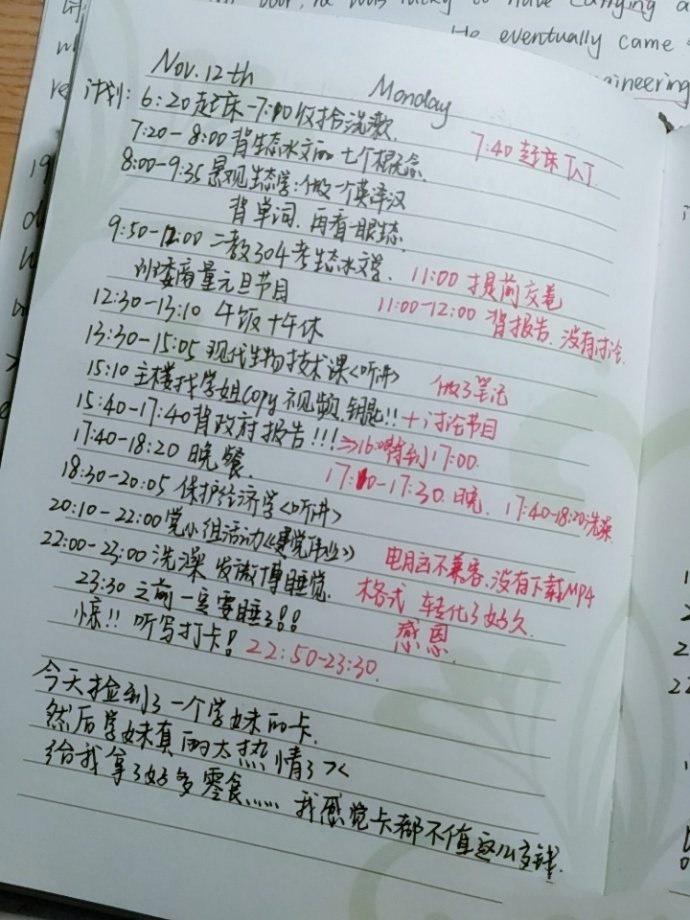 He eventually came
Nov. 12th Monday
计划: 6:20起床-7:10收拾洗漱. 7:40 起床 TAT.
7:20-8:00 背生态水文的七个概念.
8:00-9:35 景观生态学:做一个英译汉
背单词. 再看一眼生态.
9:50-12:00 二教304考生态水文学. 11:00 提前交卷
班委商量元旦节目 11:00-12:00 背报告. 没有讨论.
12:30-13:10 午饭+午休
13:30-15:05 现代生物技术课<听讲> 做了笔记
15:10 主楼找学姐copy视频 钥匙!! +讨论节目
15:40-17:40背政府报告!!!⇒16:00背到17:00.
17:40-18:20 晚餐. 17:10-17:30.晚. 17:40-18:20洗澡.
18:30-20:05 保护经济学<听讲>
20:10-22:00党小组活动《建党伟业》 电脑不兼容.没有下载MP4
22:00-23:00 洗澡 发微博睡觉. 格式 转化了好久.
23:30 之前一定要睡了!! 感恩.
惊!! 听写打卡! 22:50-23:30.
今天捡到了一个学妹的卡.
然后学妹真的太热情了><
给我拿了好多零食...... 我感觉卡都不值这么多钱.